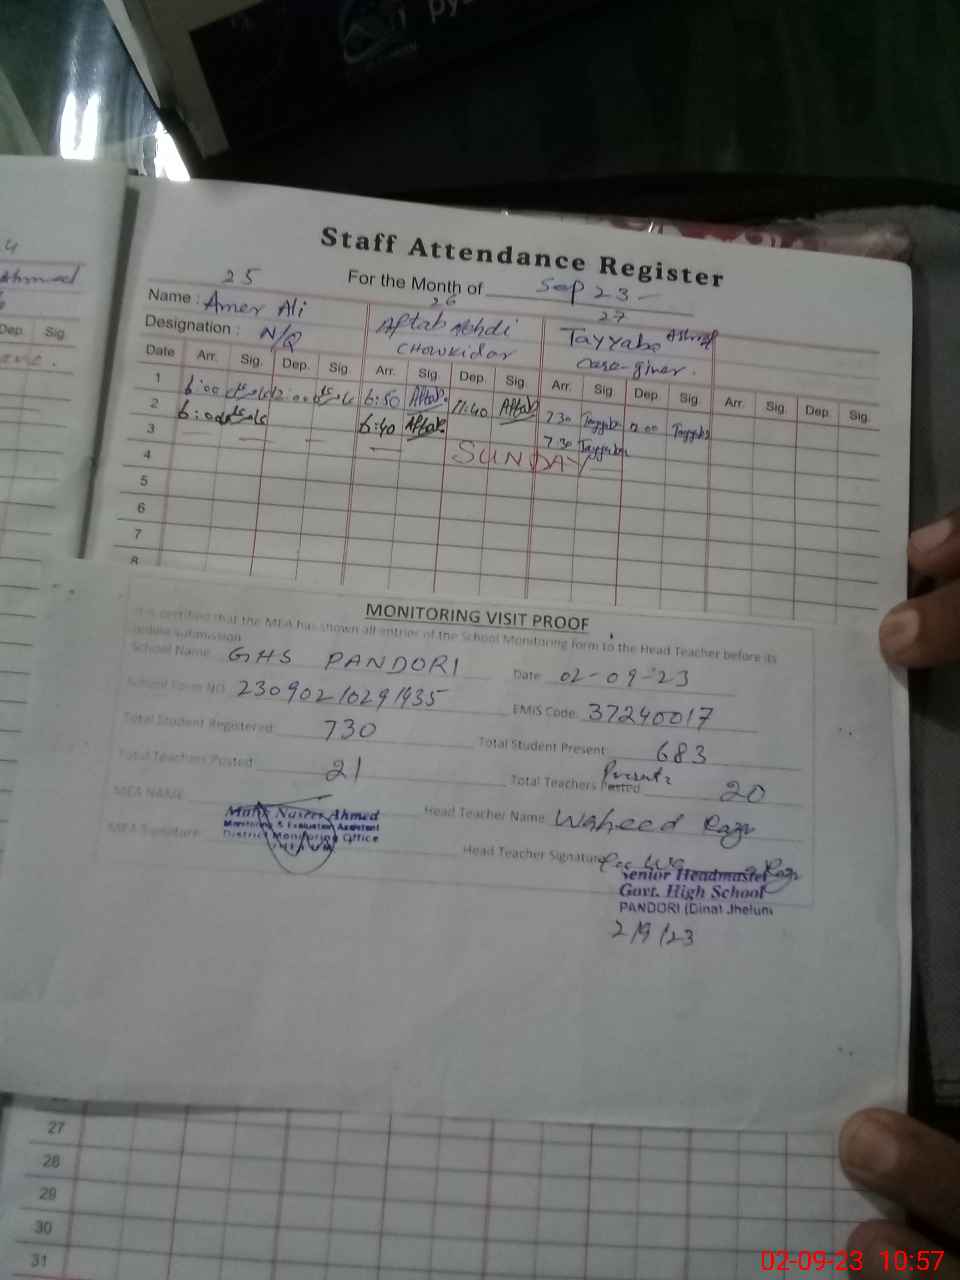 Staff Attendance Register
For the Month of Sep 23
25 26 27
Name : Amer Ali Aftab Tayyaba Ashraf
Designation : N/Q CHOWKIDAR Care-giver.
Date Arr. Sig. Dep. Sig. Arr. Sig. Dep. Sig. Arr. Sig. Dep. Sig. Arr. Sig. Dep. Sig.
1 6:00 12:00 6:50 Aftab 11:40 Aftab 7 30 Tayyaba 12 00 Tayyaba
2 6:00 6:40 Aftab 7 30 Tayyaba
3 SUNDAY
4
5
6
7
8
Ahmed
Dep. Sig.
MONITORING VISIT PROOF
It is certified that the MEA has shown all entries of the School Monitoring form to the Head Teacher before its
online submission
School Name GHS PANDORI Date 02-09-23
School Form NO EMIS Code 37240017
Total Student Registered: 730 Total Student Present 683
Total Teachers Posted: 21 Total Teachers Posted Present 20
MEA NAME Head Teacher Name Waheed
Malik Naseer Ahmed
Monitoring & Evaluation Assistant
District Monitoring Office
MEA Signature Head Teacher Signature
Senior Headmaster
Govt. High School
PANDORI (Dina) Jhelum
2/9/23
27
28
29
30
31
02-09-23 10:57